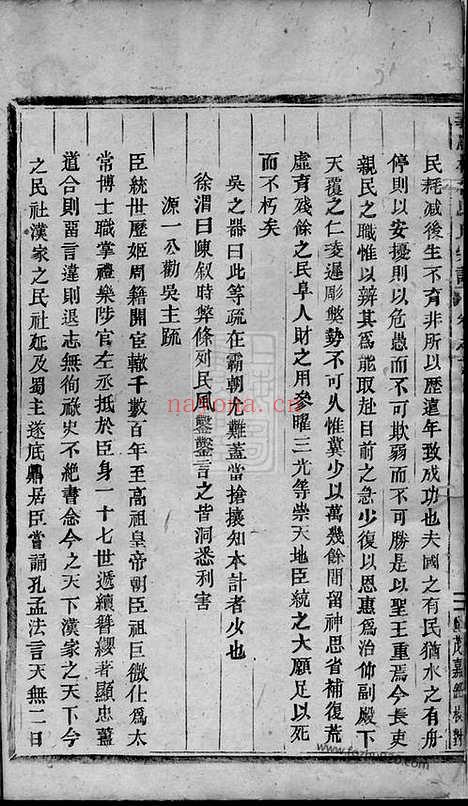 民耗減後生不育非所以歷遠年致成功也夫國之有民猶水之有舟
停則以安擾則以危愚而不可欺弱而不可勝是以聖王重焉今長吏
親民之職惟以辨其為能取赴目前之急少復以恩惠為治仰副殿下
天覆之仁淩遲彫獘勢不可久惟冀少以萬幾餘閒留神思省補復荒
虛育殘餘之民阜人財之用參曜三光等崇天地臣統之大願足以死
而不朽矣
吳之器曰此等疏在霸朝尤難蓋當搶攘知本計者少也
徐渭曰陳叙時弊條列民風鑿鑿言之皆洞悉利害
源一公勸吳主疏
臣統世歷姬周籍開宦轍千數百年至高祖皇帝朝臣祖巨微仕為太
常博士職掌禮樂陟官左丞抵於臣身一十七世遞續簪纓者顯忠藎
道合則啻言違則退志無徇祿史不絕書念今之天下漢家之天下今
之民社漢家之民社延及蜀主遂底鼎居臣嘗誦孔孟法言天無二日
nayona.cn
www.fozhuzao.com